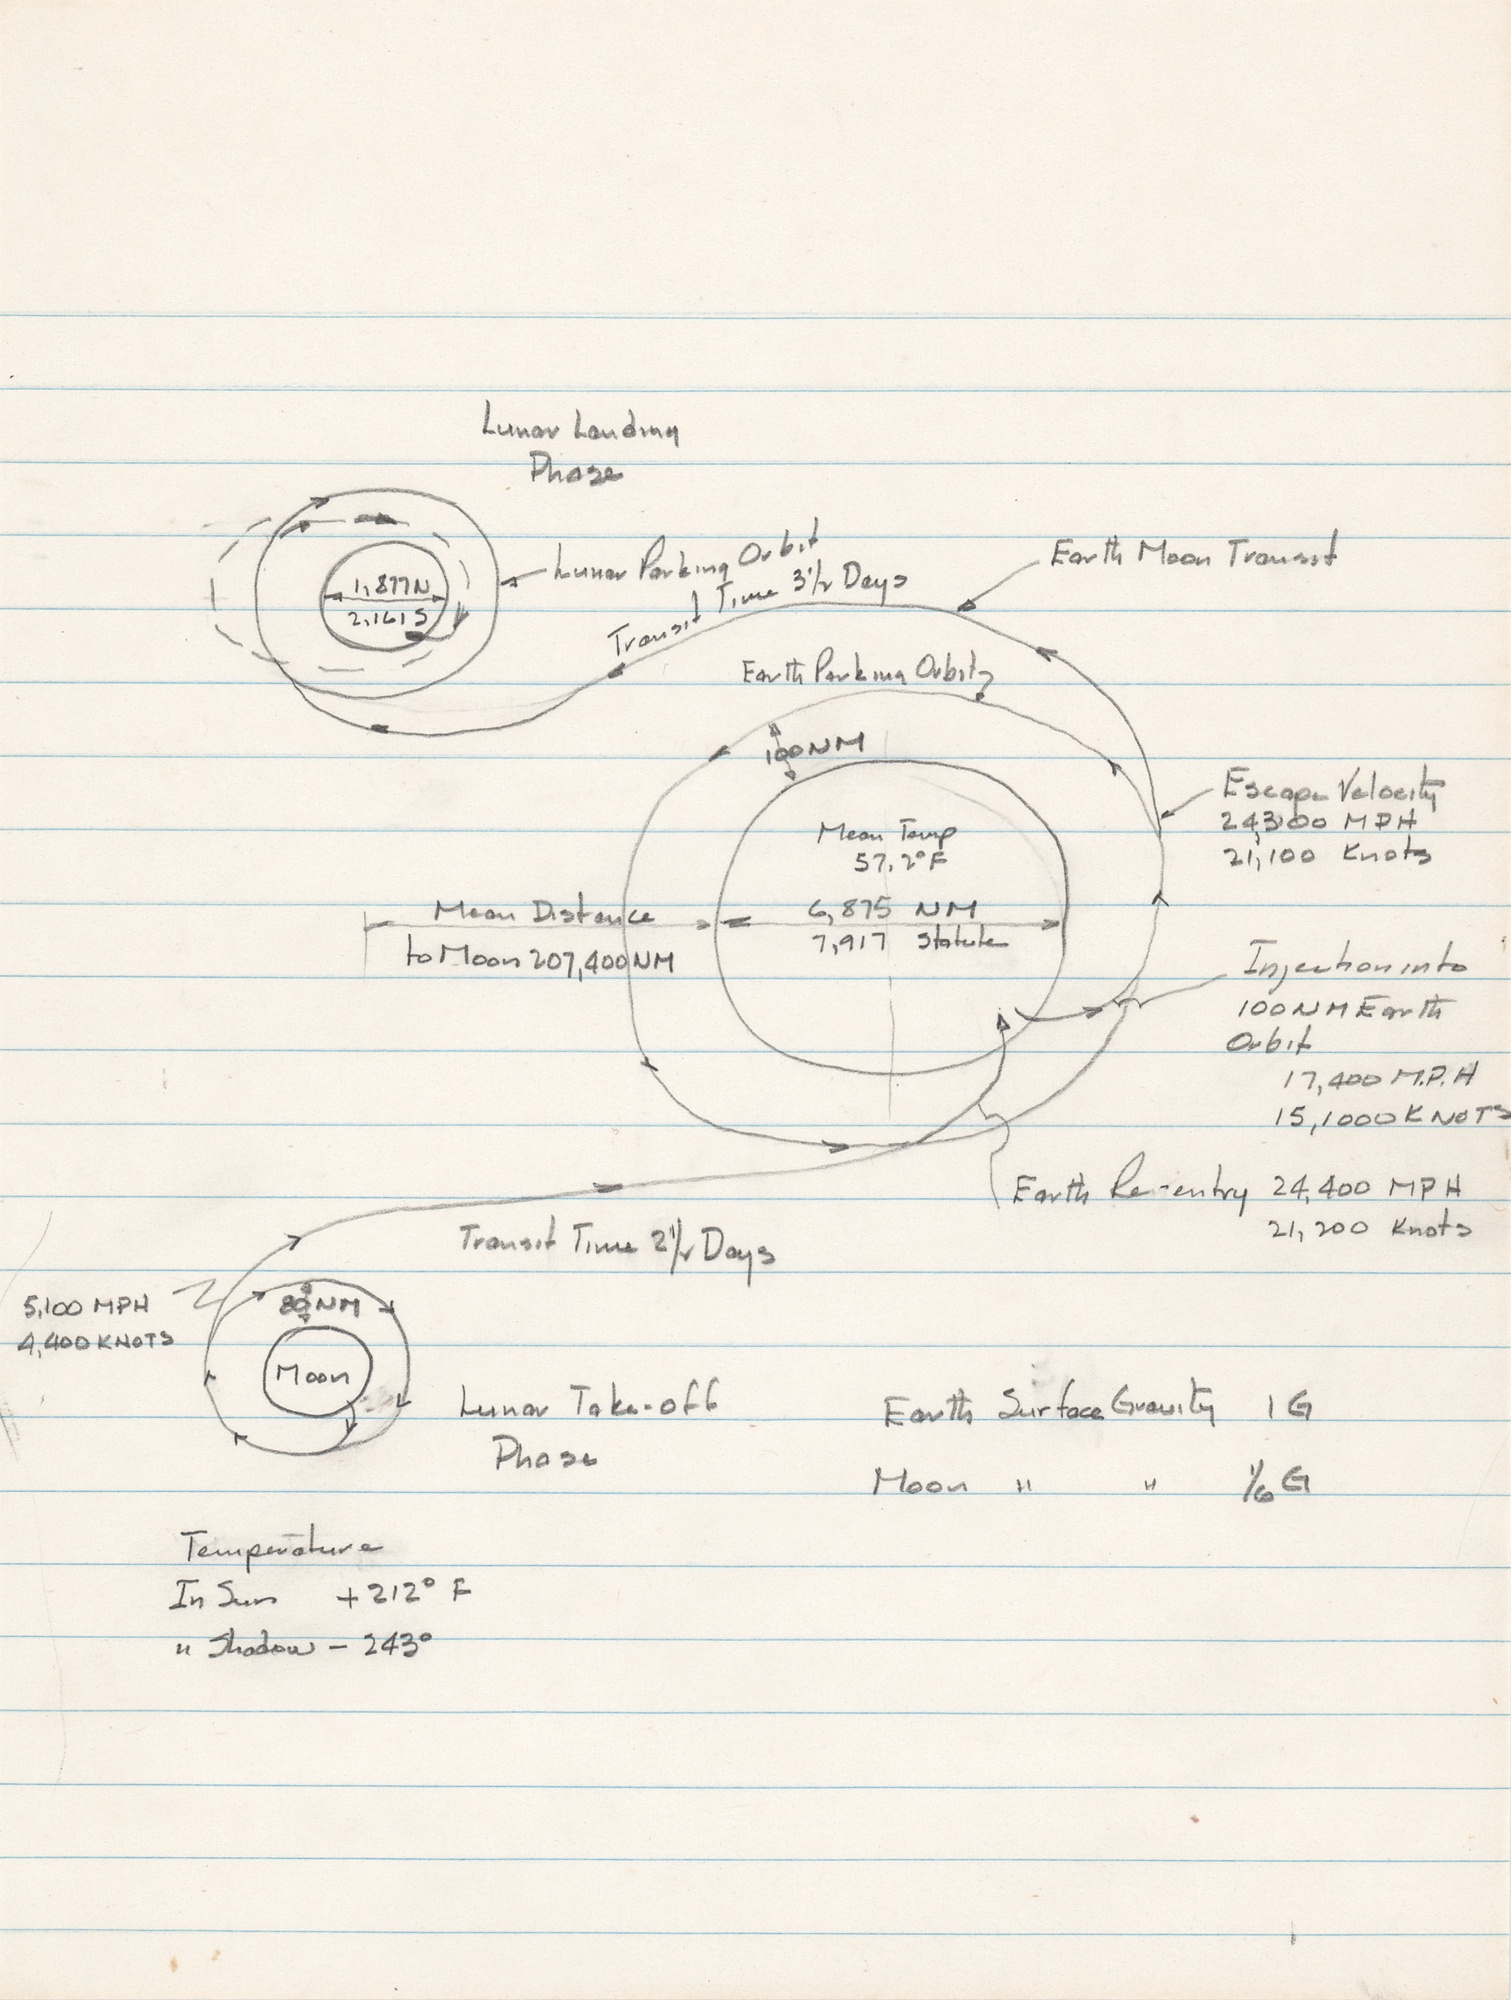 Lunar Landing
Phase
1,877N
2,161S
Lunar Parking Orbit
Transit Time 3 1/2 Days
Earth Moon Transit
Earth Parking Orbit
100NM
Escape Velocity
24,300 MPH
21,100 Knots
Mean Temp
57.2°F
6,875 NM
7,917 Statute
Mean Distance
to Moon 207,400NM
Injection into
100NM Earth
Orbit
17,400 M.P.H
15,1000 KNOTS
Earth Re-entry 24,400 MPH
21,200 Knots
Transit Time 2 1/2 Days
5,100 MPH
4,400 KNOTS
80NM
Moon
Lunar Take-off
Phase
Earth Surface Gravity 1 G
Moon " " 1/6 G
Temperature
In Sun +212° F
" Shadow - 243°